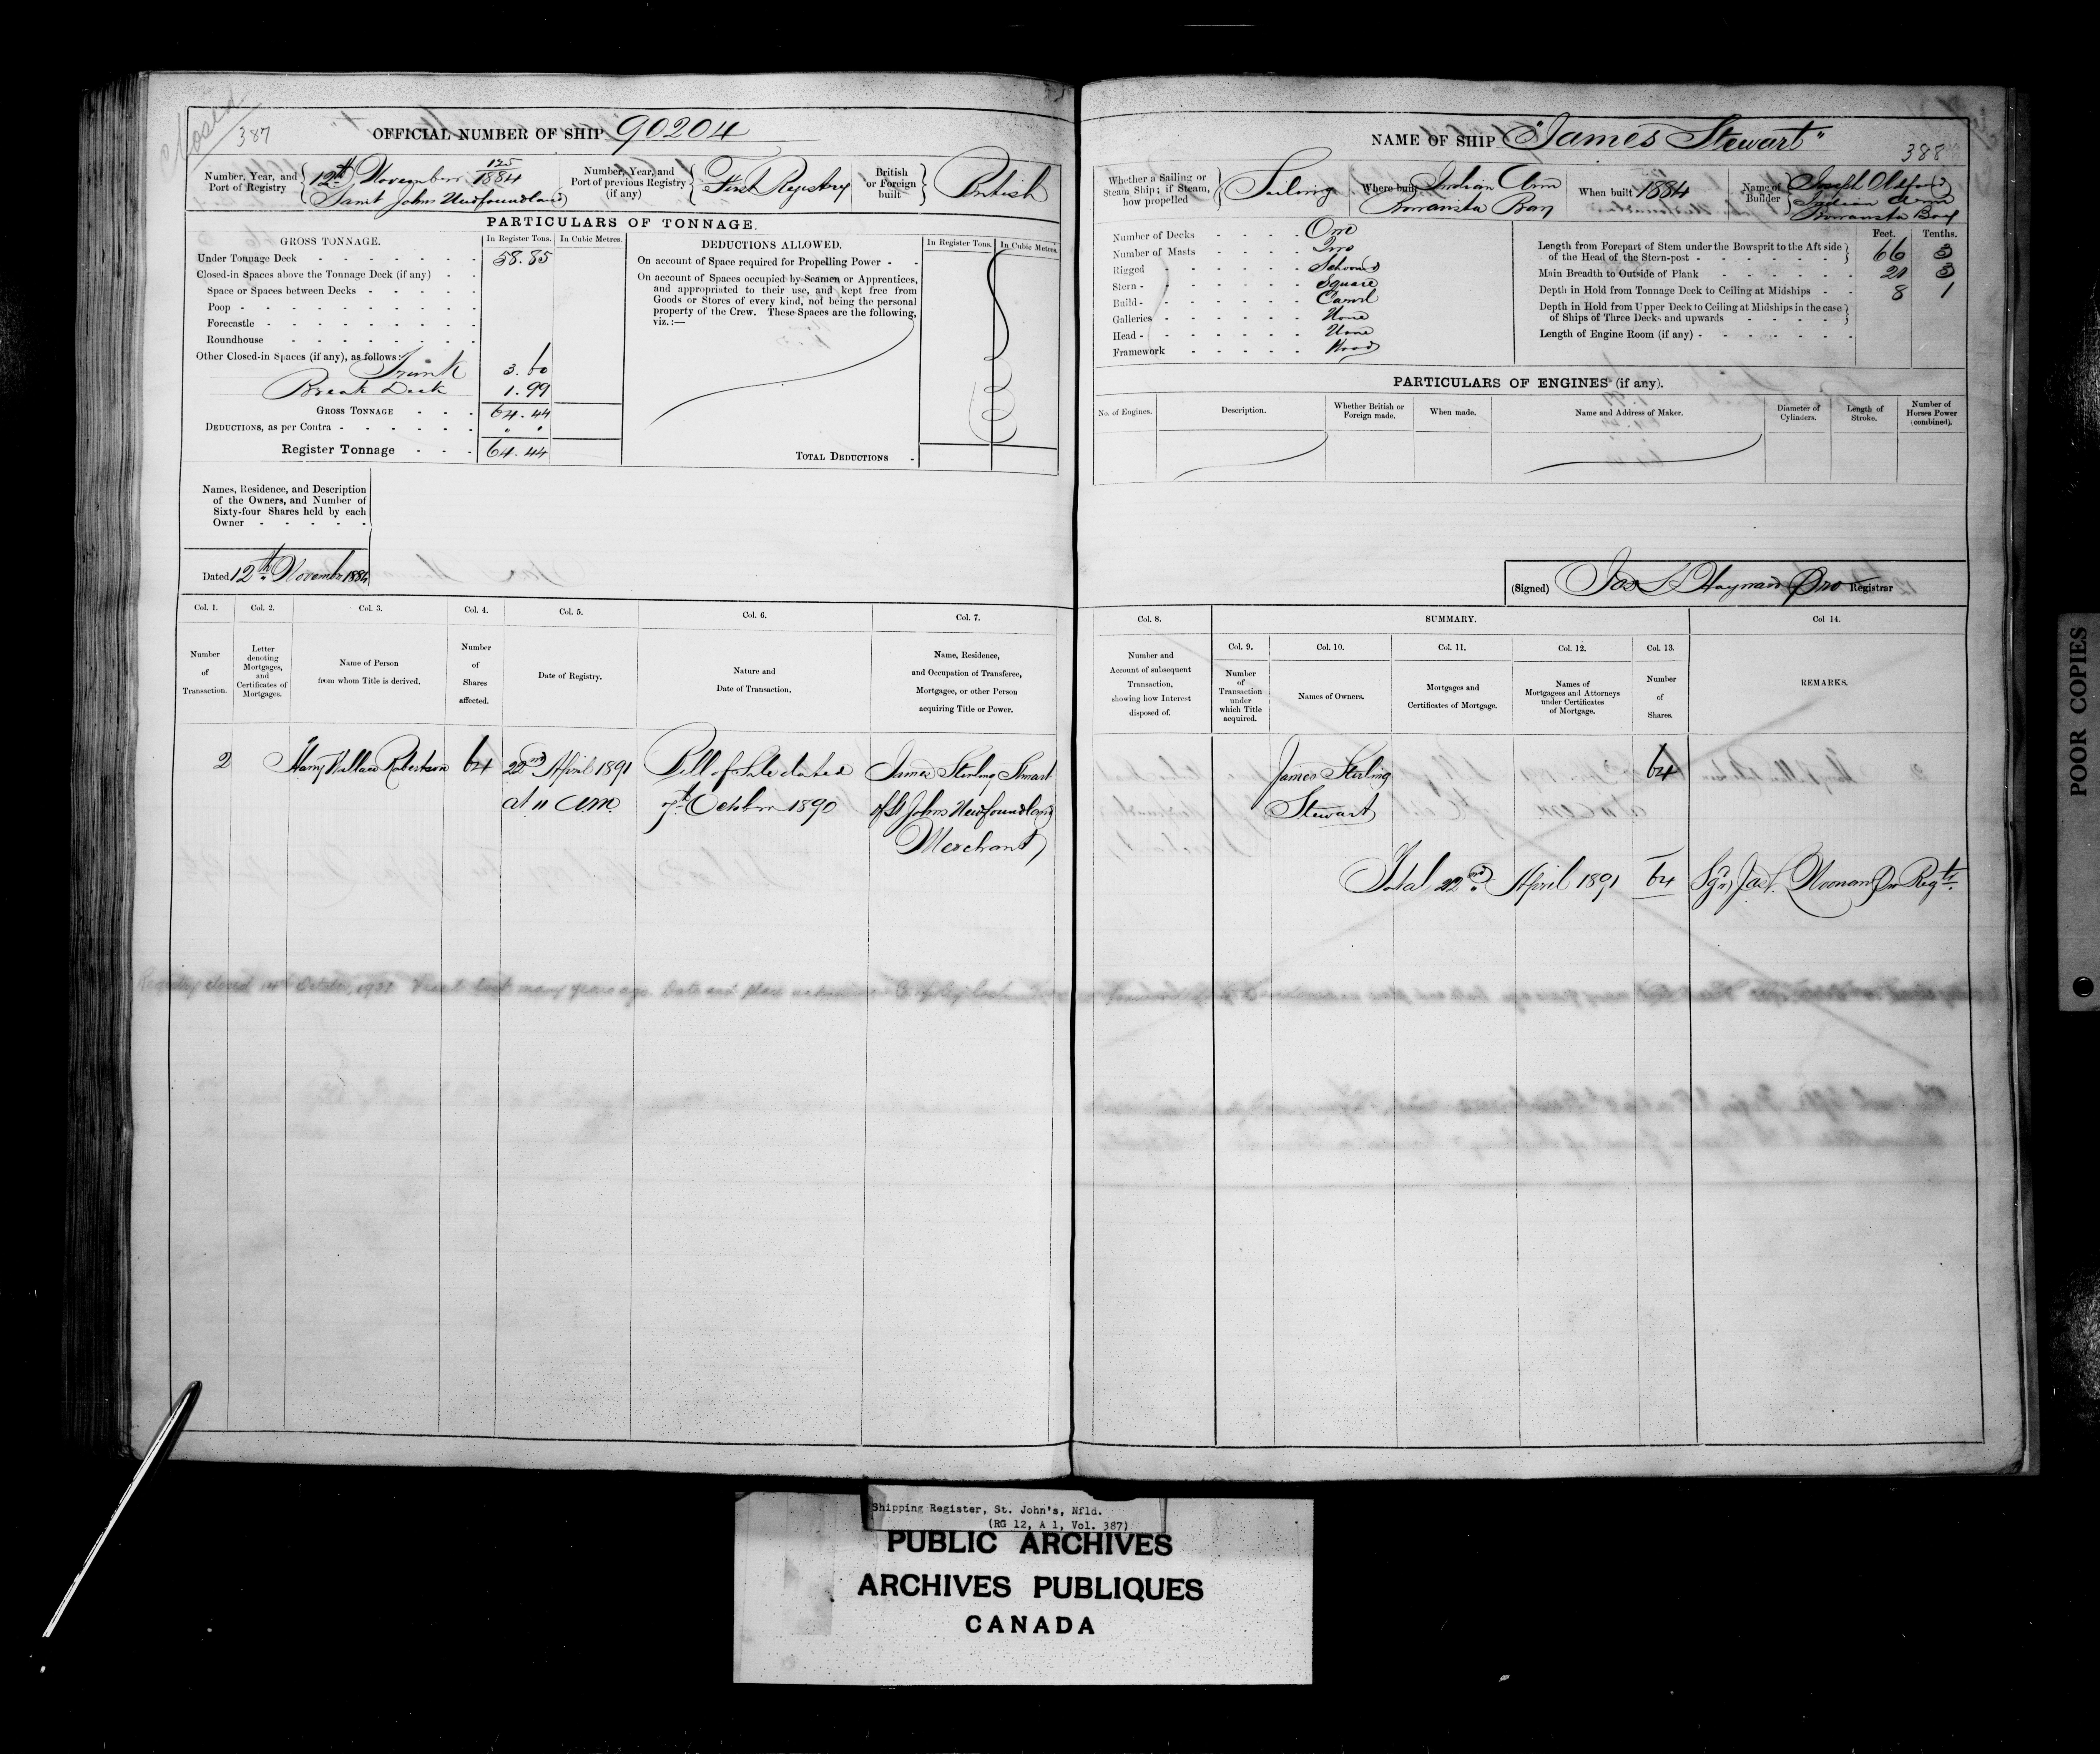 Closed
387
OFFICIAL NUMBER OF SHIP 90204
Number, Year, and Port of Registry
125
12th November 1884
Saint Johns Newfoundland
Number, Year, and Port of previous Registry (if any)
First Registry
British or Foreign built
British
PARTICULARS OF TONNAGE.
GROSS TONNAGE.
In Register Tons.
In Cubic Metres.
Under Tonnage Deck 58.85
Closed-in Spaces above the Tonnage Deck (if any)
Space or Spaces between Decks
Poop
Forecastle
Roundhouse
Other Closed-in Spaces (if any), as follows:
Trunk 3.60
Break Deck 1.99
GROSS TONNAGE 64.44
DEDUCTIONS, as per Contra
Register Tonnage 64.44
DEDUCTIONS ALLOWED.
In Register Tons.
In Cubic Metres.
On account of Space required for Propelling Power
On account of Spaces occupied by Seamen or Apprentices,
and appropriated to their use, and kept free from
Goods or Stores of every kind, not being the personal
property of the Crew. These Spaces are the following,
viz.:—
TOTAL DEDUCTIONS
Names, Residence, and Description
of the Owners, and Number of
Sixty-four Shares held by each
Owner
Dated 12th November 1884
Col. 1.
Number
of
Transaction.
Col. 2.
Letter
denoting
Mortgages,
and
Certificates of
Mortgages.
Col. 3.
Name of Person
from whom Title is derived.
Col. 4.
Number
of
Shares
affected.
Col. 5.
Date of Registry.
Col. 6.
Nature and
Date of Transaction.
Col. 7.
Name, Residence,
and Occupation of Transferee,
Mortgagee, or other Person
acquiring Title or Power.
2
Harry Wallace Robertson
64
22nd April 1891
at 11 am
Bill of Sale dated
7th October 1890
James Sterling Stewart
of St Johns Newfoundland
Merchant
Registry closed 14th October, 1931. Vessel lost many years ago. Date and place unknown.
388
NAME OF SHIP "James Stewart"
Whether a Sailing or
Steam Ship; if Steam,
how propelled
Sailing
Where built
Indian Arm
Bonavista Bay
When built 1884
Name of Builder
Joseph Oldford
Indian Arm
Bonavista Bay
Number of Decks One
Number of Masts Two
Rigged Schooner
Stern Square
Build Carvel
Galleries None
Head None
Framework Wood
Feet.
Tenths.
Length from Forepart of Stem under the Bowsprit to the Aft side
of the Head of the Stern-post 66 3
Main Breadth to Outside of Plank 20 3
Depth in Hold from Tonnage Deck to Ceiling at Midships 8 1
Depth in Hold from Upper Deck to Ceiling at Midships in the case
of Ships of Three Decks and upwards
Length of Engine Room (if any)
PARTICULARS OF ENGINES (if any).
No. of Engines.
Description.
Whether British or
Foreign made.
When made.
Name and Address of Maker.
Diameter of
Cylinders.
Length of
Stroke.
Number of
Horses Power
(combined).
(Signed) Jas L Hayward Pro Registrar
Col. 8.
Number and
Account of subsequent
Transaction,
showing how Interest
disposed of.
SUMMARY.
Col. 9.
Number
of
Transaction
under
which Title
acquired.
Col. 10.
Names of Owners.
Col. 11.
Mortgages and
Certificates of Mortgage.
Col. 12.
Names of
Mortgagees and Attorneys
under Certificates
of Mortgage.
Col. 13.
Number
of
Shares.
Col 14.
REMARKS.
James Sterling
Stewart
64
Total 22nd April 1891 64
Noonan
POOR COPIES
Shipping Register, St. John's, Nfld.
(RG 12, A 1, Vol. 387)
PUBLIC ARCHIVES
ARCHIVES PUBLIQUES
CANADA